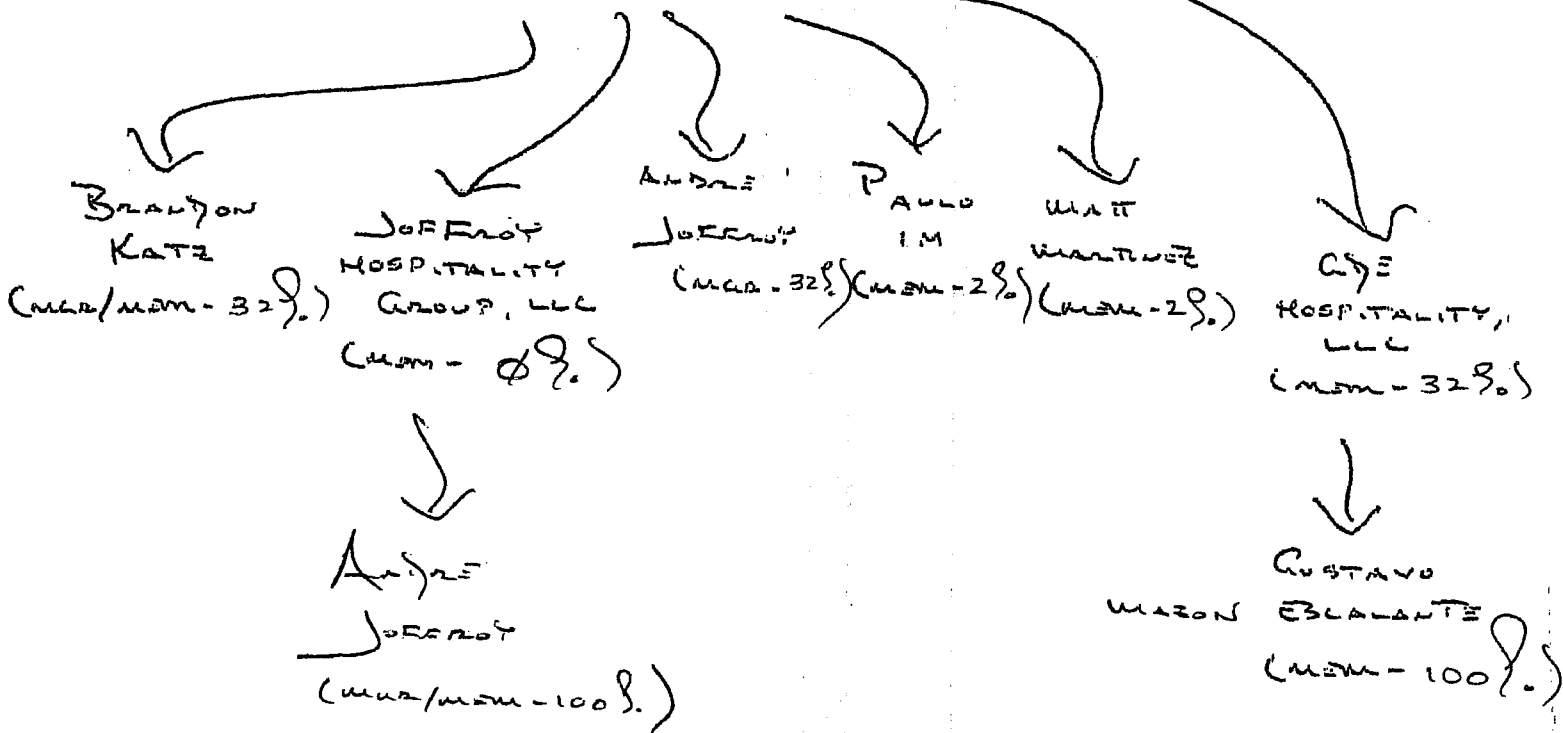 BRANDON
KATZ
(MGR/MEM - 32%)
JOFFROY
HOSPITALITY
GROUP, LLC
(MEM - Ø%)
ANDRE
JOFFROY
(MGR - 32%)
PAULO
IM
(MEM - 2%)
MATT
MARTINEZ
(MEM - 2%)
HOSPITALITY,
LLC
(MEM - 32%)
ANDRE
JOFFROY
(MGR/MEM - 100%)
GUSTAVO
MAZON ESCALANTE
(MEM - 100%)